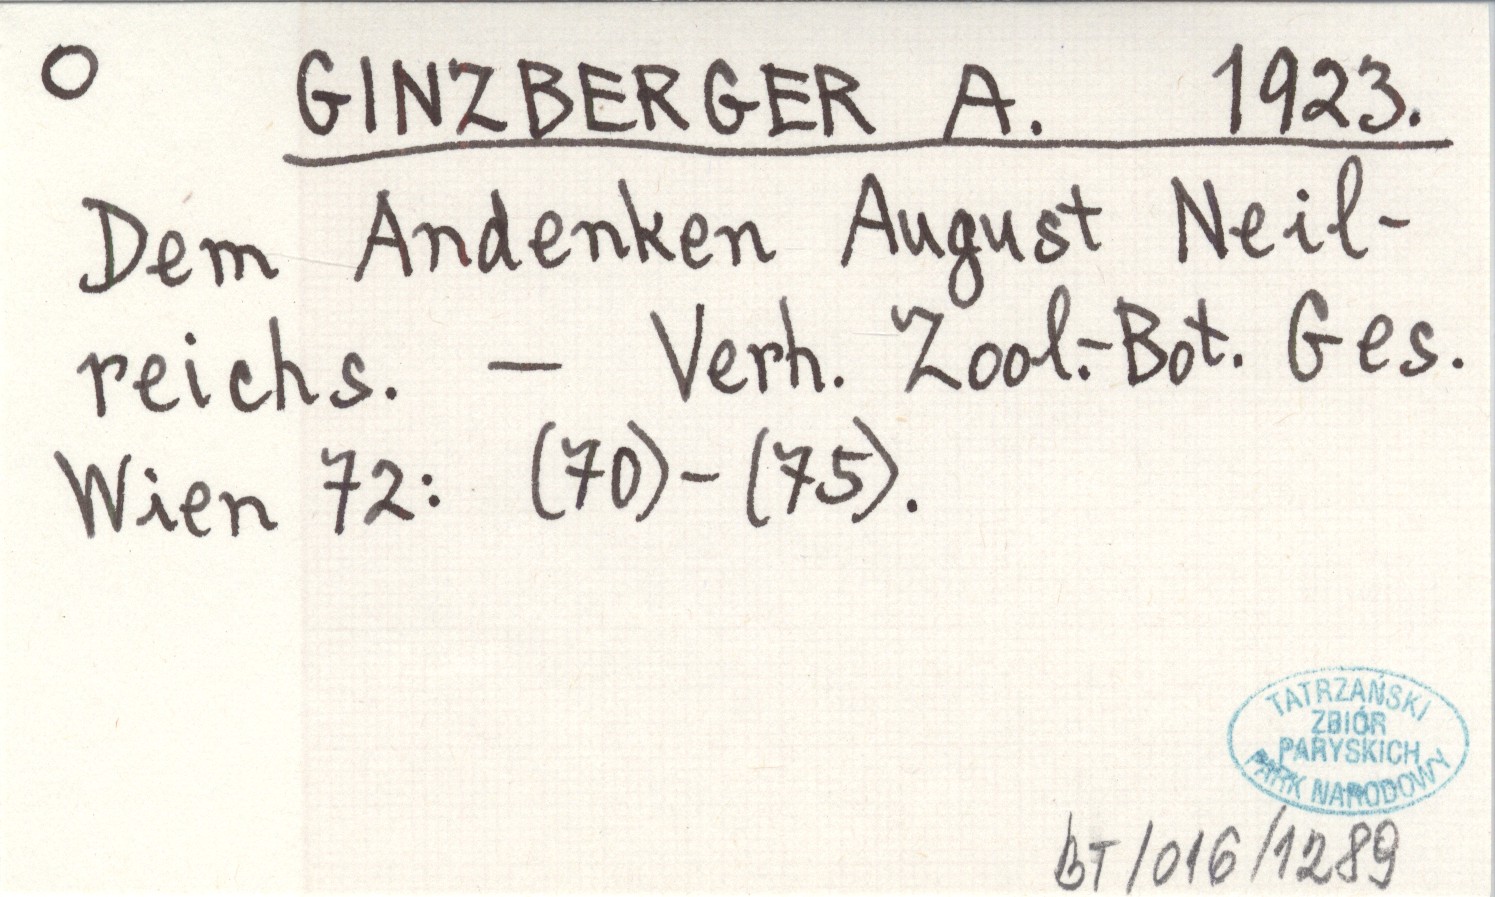 O GINZBERGER A. 1923.
Dem Andenken August Neil-
reichs. — Verh. Zool.-Bot. Ges.
Wien 72: (70)-(75).
TATRZAŃSKI
ZBIÓR
PARYSKICH
PARK NARODOWY
BT/016/1289